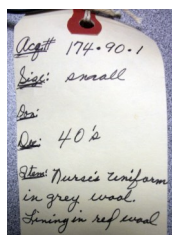 Acq# 174.90.1
Size: small
Don:
Dec: 40's
Item: Nurse's Uniform
in grey wool.
Lining in red wool